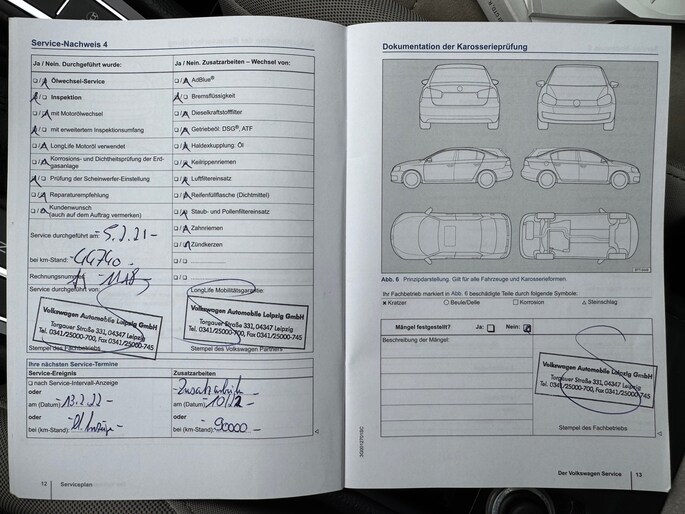 Service-Nachweis 4
Ja / Nein. Durchgeführt wurde:
Ölwechsel-Service
Inspektion
mit Motorölwechsel
mit erweitertem Inspektionsumfang
LongLife Motoröl verwendet
Korrosions- und Dichtheitsprüfung der Erd-
gasanlage
Prüfung der Scheinwerfer-Einstellung
Reparaturempfehlung
Kundenwunsch
(auch auf dem Auftrag vermerken)
Service durchgeführt am: 5.2.21 -
bei km-Stand: -44740-
Rechnungsnummer
Service durchgeführt von:
Volkswagen Automobile Leipzig GmbH
Torgauer Straße 331, 04347 Leipzig
Tel. 0341/25000-700, Fax 0341/25000-745
Stempel des Fachbetriebs
Ja / Nein. Zusatzarbeiten – Wechsel von:
AdBlue®
Bremsflüssigkeit
Dieselkraftstofffilter
Getriebeöl: DSG®, ATF
Haldexkupplung: Öl
Keilrippenriemen
Luftfiltereinsatz
Reifenfüllflasche (Dichtmittel)
Staub- und Pollenfiltereinsatz
Zahnriemen
Zündkerzen
LongLife Mobilitätsgarantie:
Volkswagen Automobile Leipzig GmbH
Torgauer Straße 331, 04347 Leipzig
Tel. 0341/25000-700, Fax 0341/25000-745
Stempel des Volkswagen Partners
Ihre nächsten Service-Termine
Service-Ereignis
nach Service-Intervall-Anzeige
oder
am (Datum): 13.2.22 -
oder
bei (km-Stand):
Zusatzarbeiten
oder
am (Datum): 10/22 -
oder
bei (km-Stand): -90000-
12 Serviceplan
Dokumentation der Karosserieprüfung
Abb. 6 Prinzipdarstellung. Gilt für alle Fahrzeuge und Karosserieformen.
Ihr Fachbetrieb markiert in Abb. 6 beschädigte Teile durch folgende Symbole:
✕ Kratzer ○ Beule/Delle □ Korrosion △ Steinschlag
Mängel festgestellt? Ja: Nein:
Beschreibung der Mängel:
Volkswagen Automobile Leipzig GmbH
Torgauer Straße 331, 04347 Leipzig
Tel. 0341/25000-700, Fax 0341/25000-745
Stempel des Fachbetriebs
Der Volkswagen Service 13